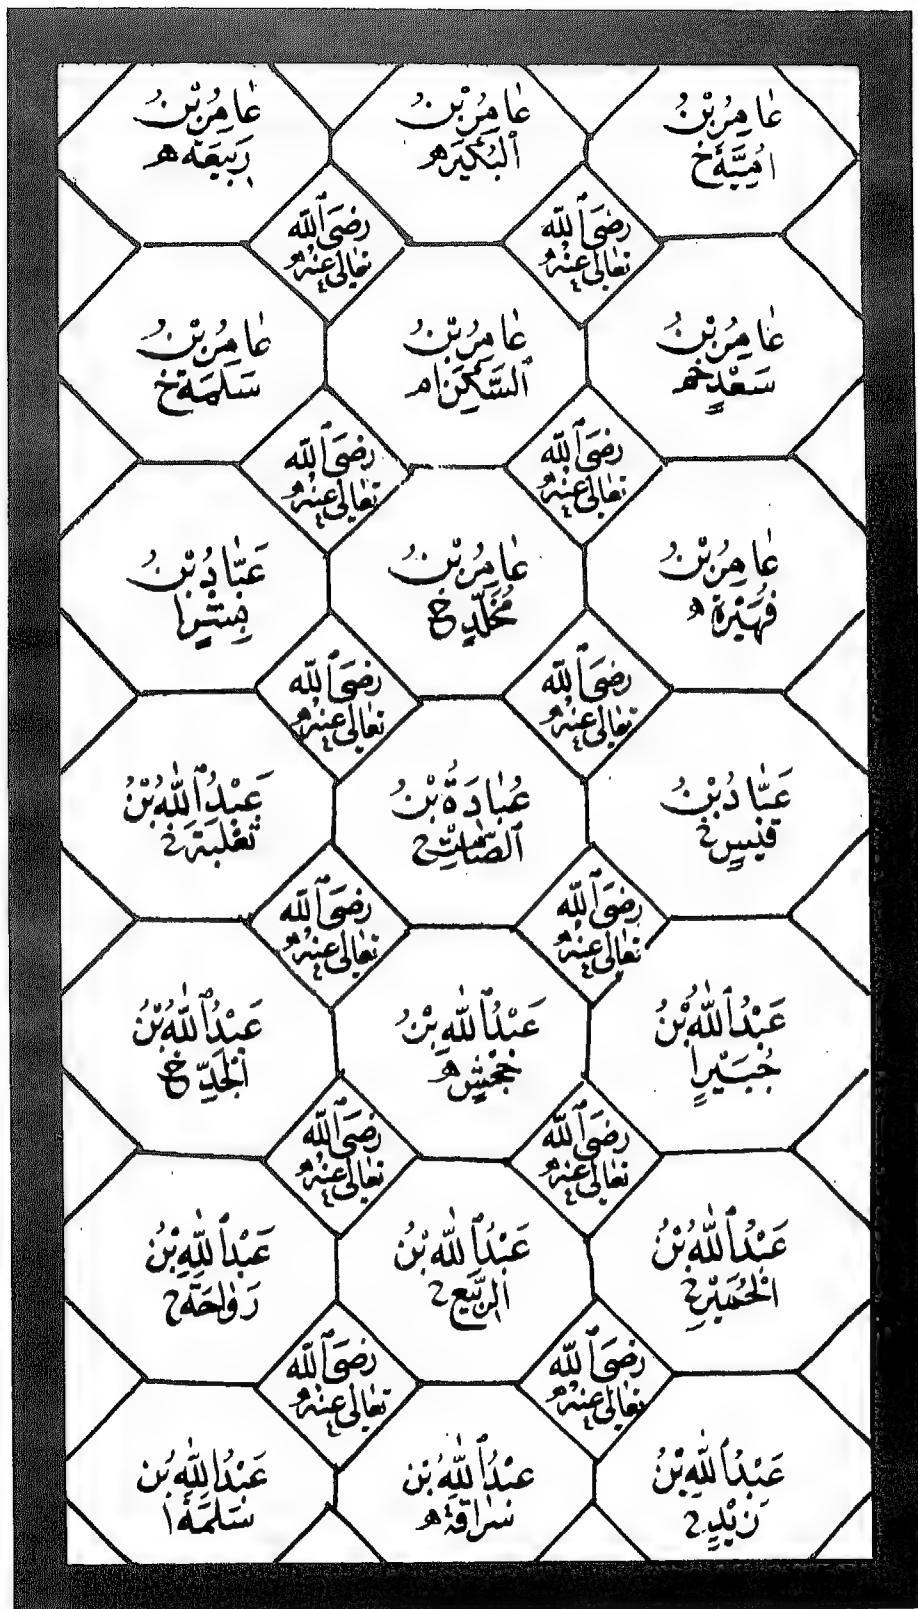 عَامِرُ بْنُ
اُمَيَّةَ خ
عَامِرُ بْنُ
ٱلْبُكَيْرِ ه
عَامِرُ بْنُ
رَبِيعَةَ ه
رَضِىَ ٱللّٰه
تَعَالٰى عَنْهُ
رَضِىَ ٱللّٰه
تَعَالٰى عَنْهُ
عَامِرُ بْنُ
سَعْدٍ خم
عَامِرُ بْنُ
ٱلسَّكَنِ ام
عَامِرُ بْنُ
سَلَمَةَ خ
رَضِىَ ٱللّٰه
تَعَالٰى عَنْهُ
رَضِىَ ٱللّٰه
تَعَالٰى عَنْهُ
عَامِرُ بْنُ
فُهَيْرَةَ ه
عَامِرُ بْنُ
مُخَلَّدٍ خ
عَبَّادُ بْنُ
بِشْرٍ ا
رَضِىَ ٱللّٰه
تَعَالٰى عَنْهُ
رَضِىَ ٱللّٰه
تَعَالٰى عَنْهُ
عَبَّادُ بْنُ
قَيْسٍ خ
عُبَادَةُ بْنُ
ٱلصَّامِتِ خ
عَبْدُ ٱللّٰهِ بْنُ
ثَعْلَبَةَ خ
رَضِىَ ٱللّٰه
تَعَالٰى عَنْهُ
رَضِىَ ٱللّٰه
تَعَالٰى عَنْهُ
عَبْدُ ٱللّٰهِ بْنُ
جُبَيْرٍ ا
عَبْدُ ٱللّٰهِ بْنُ
جَحْشٍ ه
عَبْدُ ٱللّٰهِ بْنُ
ٱلْجَدِّ خ
رَضِىَ ٱللّٰه
تَعَالٰى عَنْهُ
رَضِىَ ٱللّٰه
تَعَالٰى عَنْهُ
عَبْدُ ٱللّٰهِ بْنُ
ٱلْحُمَيِّرِ خ
عَبْدُ ٱللّٰهِ بْنُ
ٱلرَّبِيعِ خ
عَبْدُ ٱللّٰهِ بْنُ
رَوَاحَةَ خ
رَضِىَ ٱللّٰه
تَعَالٰى عَنْهُ
رَضِىَ ٱللّٰه
تَعَالٰى عَنْهُ
عَبْدُ ٱللّٰهِ بْنُ
زَيْدٍ خ
عَبْدُ ٱللّٰهِ بْنُ
سُرَاقَةَ ه
عَبْدُ ٱللّٰهِ بْنُ
سَلَمَةَ ا